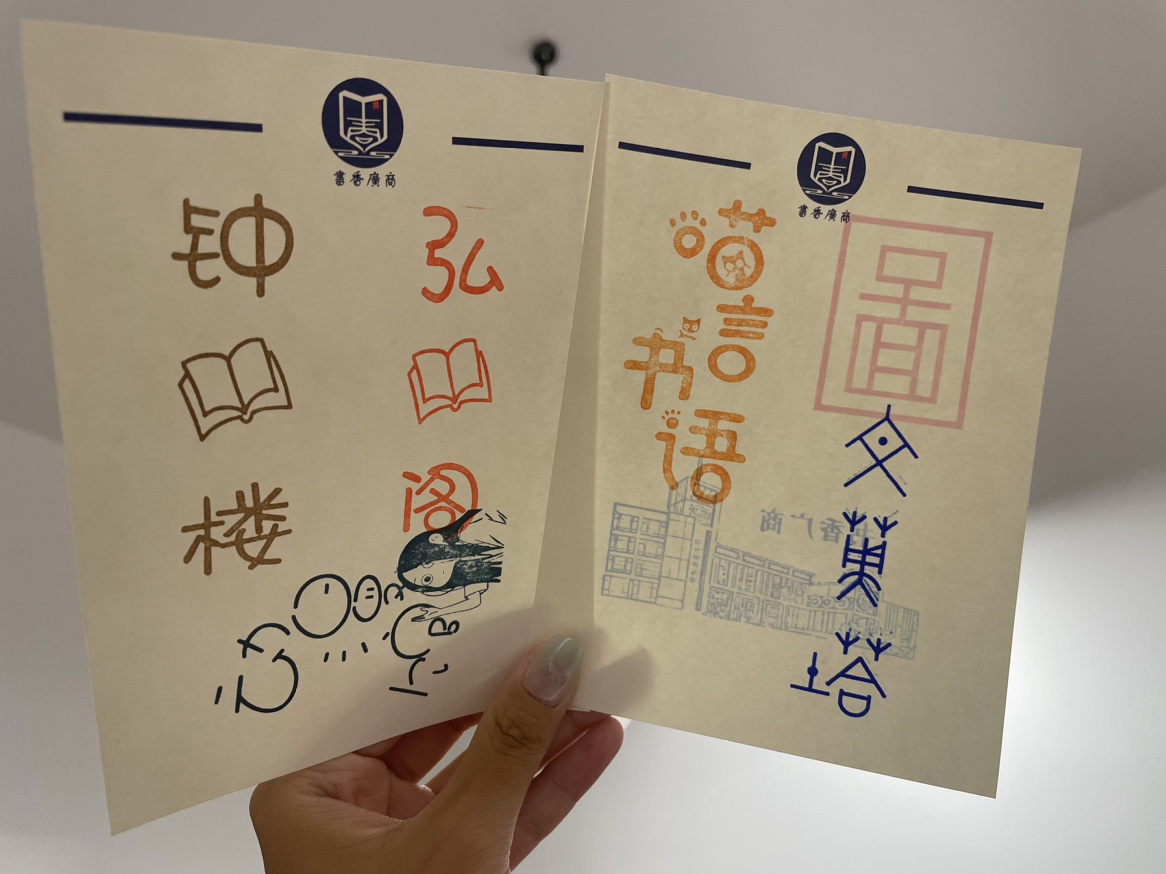 書香廣商
钟
楼
弘
阁
書香廣商
喵言
书语
圖
文
塔
书香广商